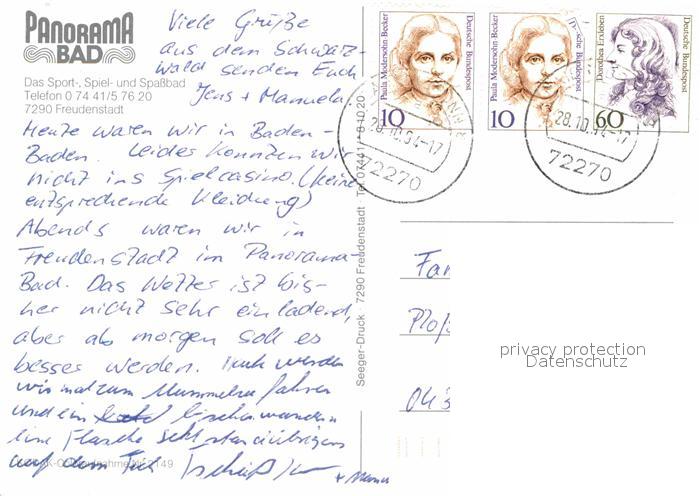 PANORAMA
BAD
Das Sport-, Spiel- und Spaßbad
Telefon 0 74 41/5 76 20
7290 Freudenstadt
Viele Grüße
aus dem Schwarz-
wald senden Euch
Jens + Manuela.
Heute waren wir in Baden-
Baden. Leider konnten wir
nicht ins Spielcasino. (keine
entsprechende Kleidung)
Abends waren wir in
Freudenstadt im Panorama-
Bad. Das Wetter ist bis-
her nicht sehr einladend,
aber ab morgen soll es
besser werden. Dann werden
wir mal zum Mummelsee fahren
und ein bischen wandern
eine Flasche Sekt
auf dem Tisch
Seeger-Druck 7290 Freudenstadt Tel. 07441/ 8 10 20
Paula Modersohn-Becker
Deutsche Bundespost
10
Paula Modersohn-Becker
Deutsche Bundespost
10
Dorothea Erxleben
Deutsche Bundespost
60
28.10.94-17
72270
28.10.94-17
72270
Fa
privacy protection
Datenschutz